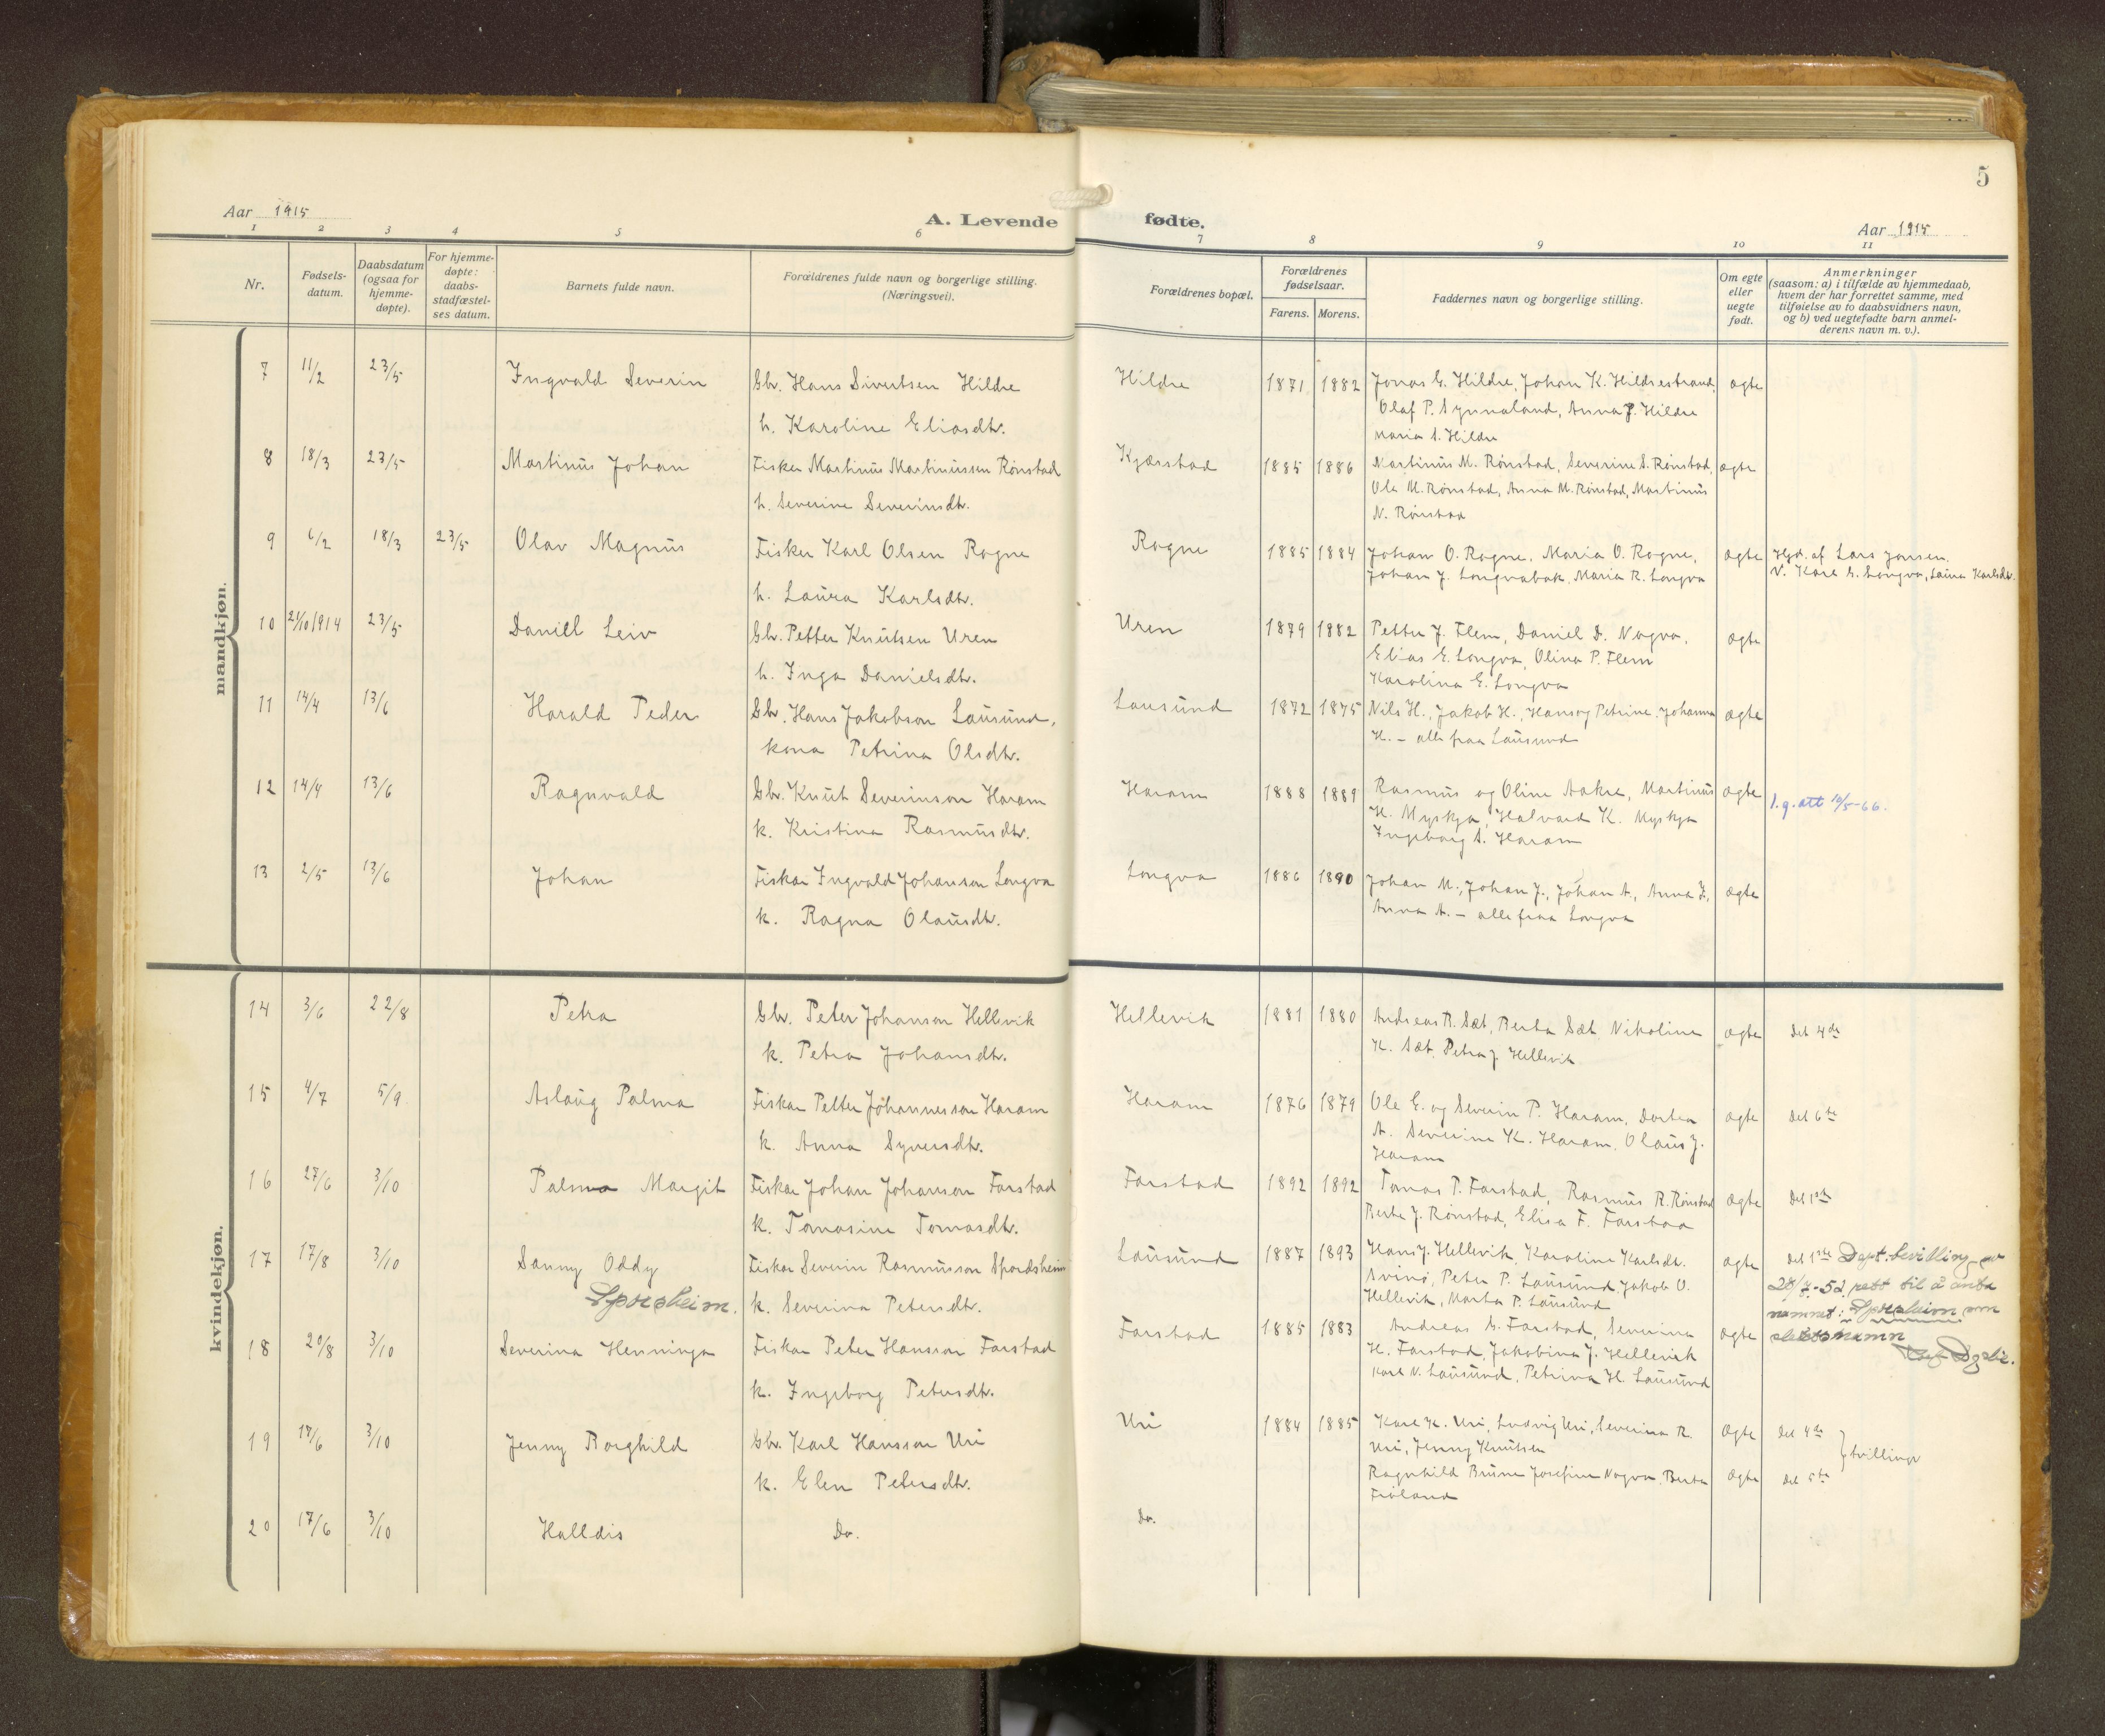 5
Aar 1915
A. Levende fødte.
Aar 1915
1 2 3 4 5 6 7 8 9 10 11
Nr.
Fødsels-
datum.
Daabsdatum
(ogsaa for
hjemme-
døpte).
For hjemme-
døpte:
daabs-
stadfæstel-
ses datum.
Barnets fulde navn.
Forældrenes fulde navn og borgerlige stilling.
(Næringsvei).
Forældrenes bopæl.
Forældrenes
fødselsaar.
Farens. Morens.
Faddernes navn og borgerlige stilling.
Om egte
eller
uegte
født.
Anmerkninger
(saasom: a) i tilfælde av hjemmedaab,
hvem der har forrettet samme, med
tilføielse av to daabsvidners navn,
og b) ved uegtefødte barn anmel-
derens navn m. v.).
mandkjøn.
7 11/2 23/5 Ingvald Severin Gbr. Hans Sivertsen Hildre Hildre 1871 1882 Jonas E. Hildre, Johan K. Hildrestrand, ægte
h. Karoline Eliasdtr. Olaf P. Synnaland, Anna J. Hildre
Maria S. Hildre
8 18/3 23/5 Martinus Johan Fisker Martinus Martinussen Rønstad Kjærstad 1885 1886 Martinus M. Rønstad, Severine S. Rønstad, ægte
h. Severine Severinsdtr. Ole M. Rønstad, Anna M. Rønstad, Martinus
N. Rønstad
9 6/2 18/3 23/5 Olav Magnus Fisker Karl Olsen Rogne Rogne 1885 1884 Johan O. Rogne, Maria O. Rogne, ægte Hjd. af Lars Jonsen.
h. Laura Karlsdtr. Johan J. Longvabak, Maria R. Longva V. Karl S. Longva, Laura Karlsdtr.
10 21/10 1914 23/5 Daniel Leiv Gbr. Petter Knutsen Uren Uren 1879 1882 Petter J. Flem, Daniel D. Nogva, ægte
h. Inga Danielsdtr. Elias E. Longva, Olina P. Flem
Karolina E. Longva
11 14/4 13/6 Harald Peder Gbr. Hans Jakobson Lausund, Lausund 1872 1875 Nils H., Jakob H., Hans og Petrine, Johanna ægte
kona Petrina Olsdtr. H. – alle fraa Lausund
12 14/4 13/6 Ragnvald Gbr. Knut Severinson Haram Haram 1888 1889 Rasmus og Oline Aakre, Martinus ægte l.g. att 10/5-66.
k. Kristina Rasmusdtr. H. Myskja, Halvard K. Myskja
Ingeborg S. Haram
13 2/5 13/6 Johan Fiskar Ingvald Johanson Longva Longva 1886 1890 Johan M., Johan J., Johan A., Anna J., ægte
k. Ragna Olausdtr. Anna A. – alle fraa Longva
kvindekjøn.
14 3/6 22/8 Petra Gbr. Peter Johanson Hellevik Hellevik 1881 1880 Andreas R. Sæt, Berta Sæt, Nikoline ægte det 4de
k. Petra Johansdtr. K. Sæt, Petra J. Hellevik
15 4/7 5/9 Aslaug Palma Fiskar Petter Johannesson Haram Haram 1876 1879 Ole E. og Severin P. Haram, Dortea ægte det 6te
k. Anna Syversdtr. A. Severine K. Haram, Olaus J.
Haram
16 27/6 3/10 Palma Margit Fiskar Johan Johanson Farstad Farstad 1892 1892 Tomas P. Farstad, Rasmus R. Rønstad ægte det 1ste
k. Tomasine Tomasdtr. Berte J. Rønstad, Elisa F. Farstad
17 17/8 3/10 Sanny Oddy Fiskar Severin Rasmusson Spordsheim Lausund 1887 1893 Hans J. Hellevik, Karoline Karlsdtr. ægte det 1ste Dept. bevilling av
Sporsheim. k. Severina Petersdtr. Svinø, Peter P. Lausund, Jakob O. 28/7-52 rett til å anta
Hellevik, Marta P. Lausund namnet: Sporsheim som
slektsnamn
18 20/8 3/10 Severina Henninga Fiskar Peter Hansson Farstad Farstad 1885 1883 Andreas S. Farstad, Severina ægte
k. Ingeborg Petersdtr. H. Farstad, Jakobina J. Hellevik
Karl N. Lausund, Petrina H. Lausund
19 17/6 3/10 Jenny Borghild Gbr. Karl Hansson Uri Uri 1884 1885 Karl K. Uri, Ludvig Uri, Severina R. ægte det 4de
k. Elen Petersdtr. Uri, Jenny Knutsen tvillingr
20 17/6 3/10 Halldis Do. Do. Ragnhild Bruun Josefine Nogva, Berta ægte det 5te
Fioland